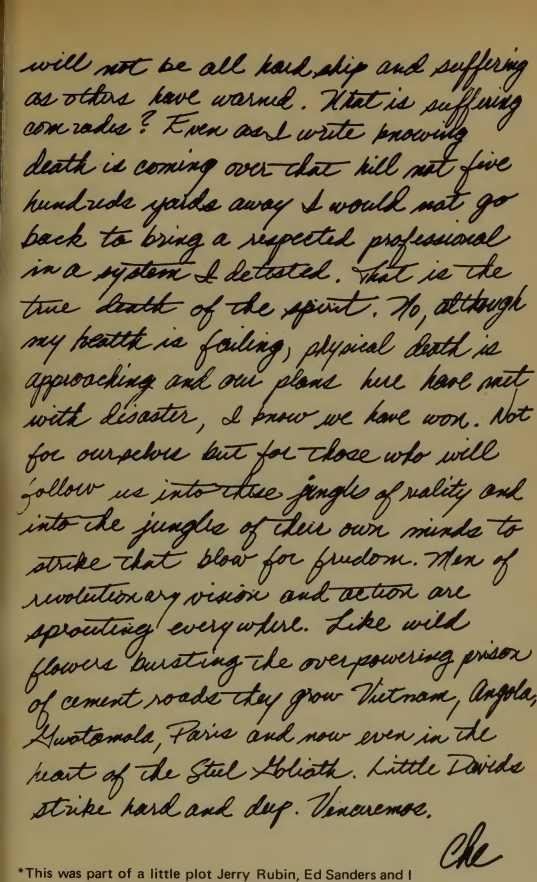 will not be all hard ship and suffering
as others have warned. What is suffering
comrades? Even as I write knowing
death is coming over that hill not five
hundreds yards away I would not go
back to bring a respected professional
in a system I detested. That is the
true death of the spirit. No, although
my health is failing, physical death is
approaching and our plans here have met
with disaster, I know we have won. Not
for ourselves but for those who will
follow us into these jungles of reality and
into the jungles of their own minds to
strike that blow for freedom. Men of
revolutionary vision and action are
sprouting everywhere. Like wild
flowers bursting the overpowering prison
of cement roads they grow Vietnam, Angola,
Guatamala, Paris and now even in the
heart of the Steel Goliath. Little Davids
strike hard and deep. Venceremos.
Che
*This was part of a little plot Jerry Rubin, Ed Sanders and I